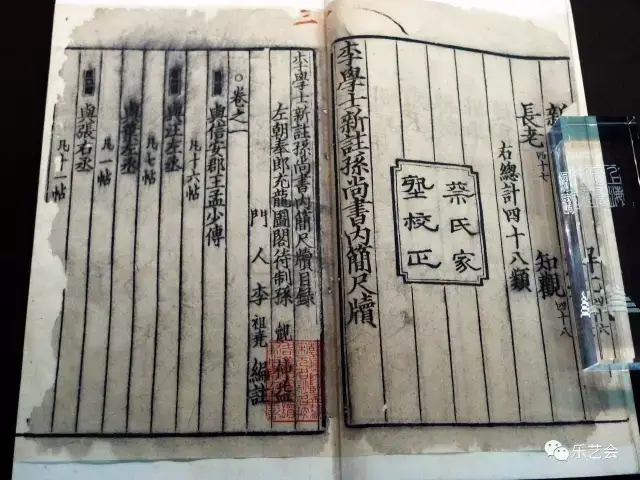 知觀 四十八
長老 四十七
右總計四十八類
蔡氏家
塾校正
李學士新註孫尚書內簡尺牘
李學士新註孫尚書內簡尺牘目錄
左朝奉郎充龍圖閣待制孫 覿 仲益
門人李祖堯編註
卷之一
與信安郡王孟少傅
凡十六帖
與汪左丞
凡七帖
與葉左丞
凡一帖
與張右丞
凡十一帖
乐艺会